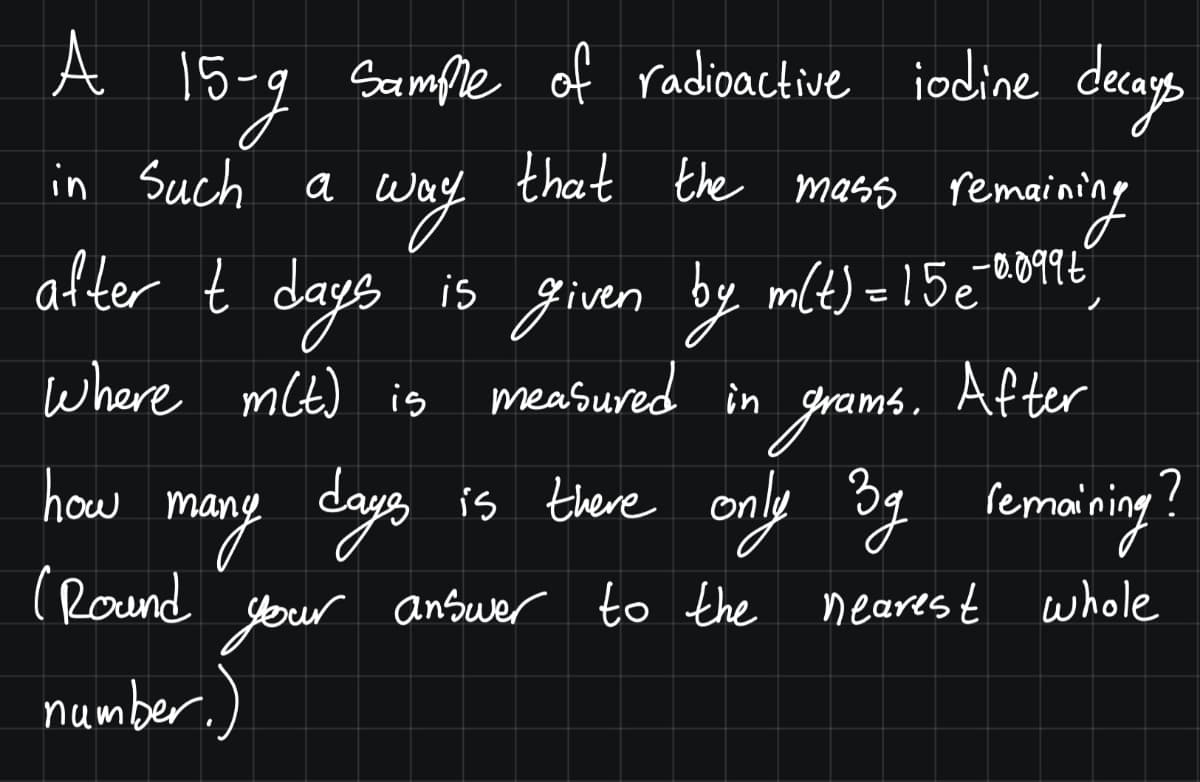 A 15-g sample of radioactive iodine decays
in such a way that the mass remaining
after t days is given by m(t) = 15e^-0.099t,
where m(t) is measured in grams. After
how many days is there only 3g remaining?
(Round your answer to the nearest whole
number.)